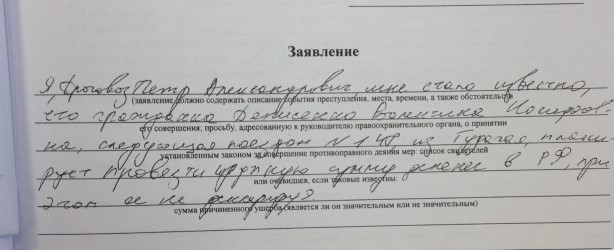 Заявление
Я, Фроговоз Петр Александрович, мне стало известно,
(заявление должно содержать описание события преступления, места, времени, а также обстоятельств
что гражданка Денисенко Валентина
его совершения; просьбу, адресованную к руководителю правоохранительного органа, о принятии
на, следующая поездом N из планы-
установленным законом за совершение противоправного деяния мер: список свидетелей
рует провезти крупную сумму денег в РФ, при
или очевидцев, если таковые известны:
этом ее не декларируя.
сумма причиненного ущерба (является ли он значительным или не значительным)